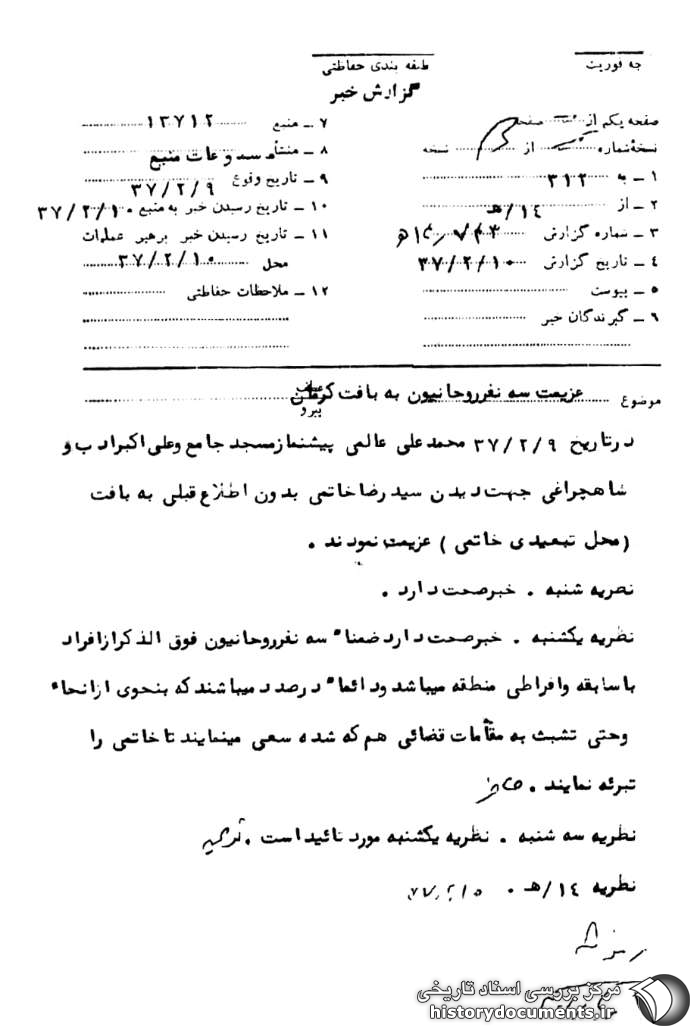 طبقه بندی حفاظتی
گزارش خبر
صفحه یکم از صفحه
نسخهٔ شماره از نسخه
۱ ـ به ۳۱۲
۲ ـ از ۱۴/هـ
۳ ـ شماره گزارش
۴ ـ تاریخ گزارش ۳۷/۲/۱۰
۵ ـ پیوست
۶ ـ گیرندگان خبر
۷ ـ منبع ۱۳۷۱۲
۸ ـ منشأ مسموعات منبع
۹ ـ تاریخ وقوع ۳۷/۲/۹
۱۰ ـ تاریخ رسیدن خبر به منبع ۳۷/۲/۱۰
۱۱ ـ تاریخ رسیدن خبر برهبر عملیات
محل ۳۷/۲/۱۰
۱۲ ـ ملاحظات حفاظتی
موضوع عزیمت سه نفرروحانیون به بافت کرمان
پیرو
درتاریخ ۳۷/۲/۹ محمدعلی عالمی پیشنمازمسجد جامع وعلی اکبرادب و
شاهچراغی جهت دیدن سیدرضاخاتمی بدون اطلاع قبلی به بافت
(محل تبعیدی خاتمی) عزیمت نمودند .
نظریه شنبه . خبرصحت دارد .
نظریه یکشنبه . خبرصحت داردضمنا" سه نفرروحانیون فوق الذکرازافراد
باسابقه وافراطی منطقه میباشدودائما" درصددمیباشندکه بنحوی ازانحاء
وحتی تشبث به مقامات قضائی هم که شده سعی مینمایند تاخاتمی را
تبرئه نمایند .
نظریه سه شنبه . نظریه یکشنبه مورد تائیداست .
نظریه ۱۴/هـ .
مرکز بررسی اسناد تاریخی
historydocuments.ir